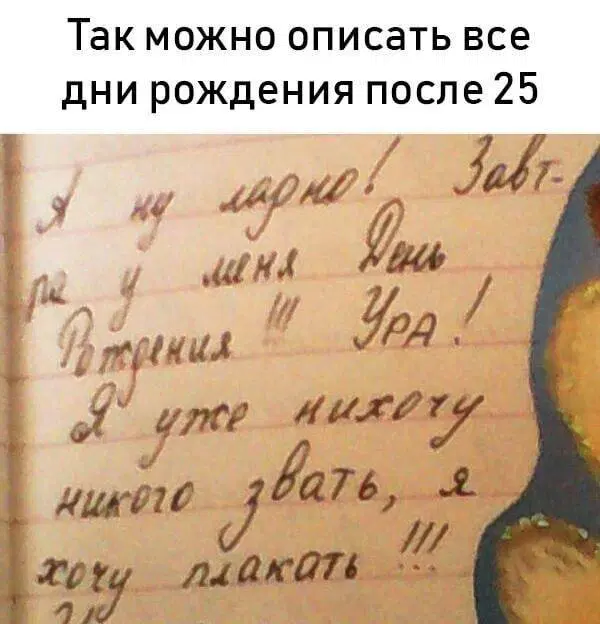 Так можно описать все
дни рождения после 25
Я ну ладно! Завт-
ра у меня День
Рождения !!! УРА!
Я уже нихочу
никого звать, я
хочу плакать !!!